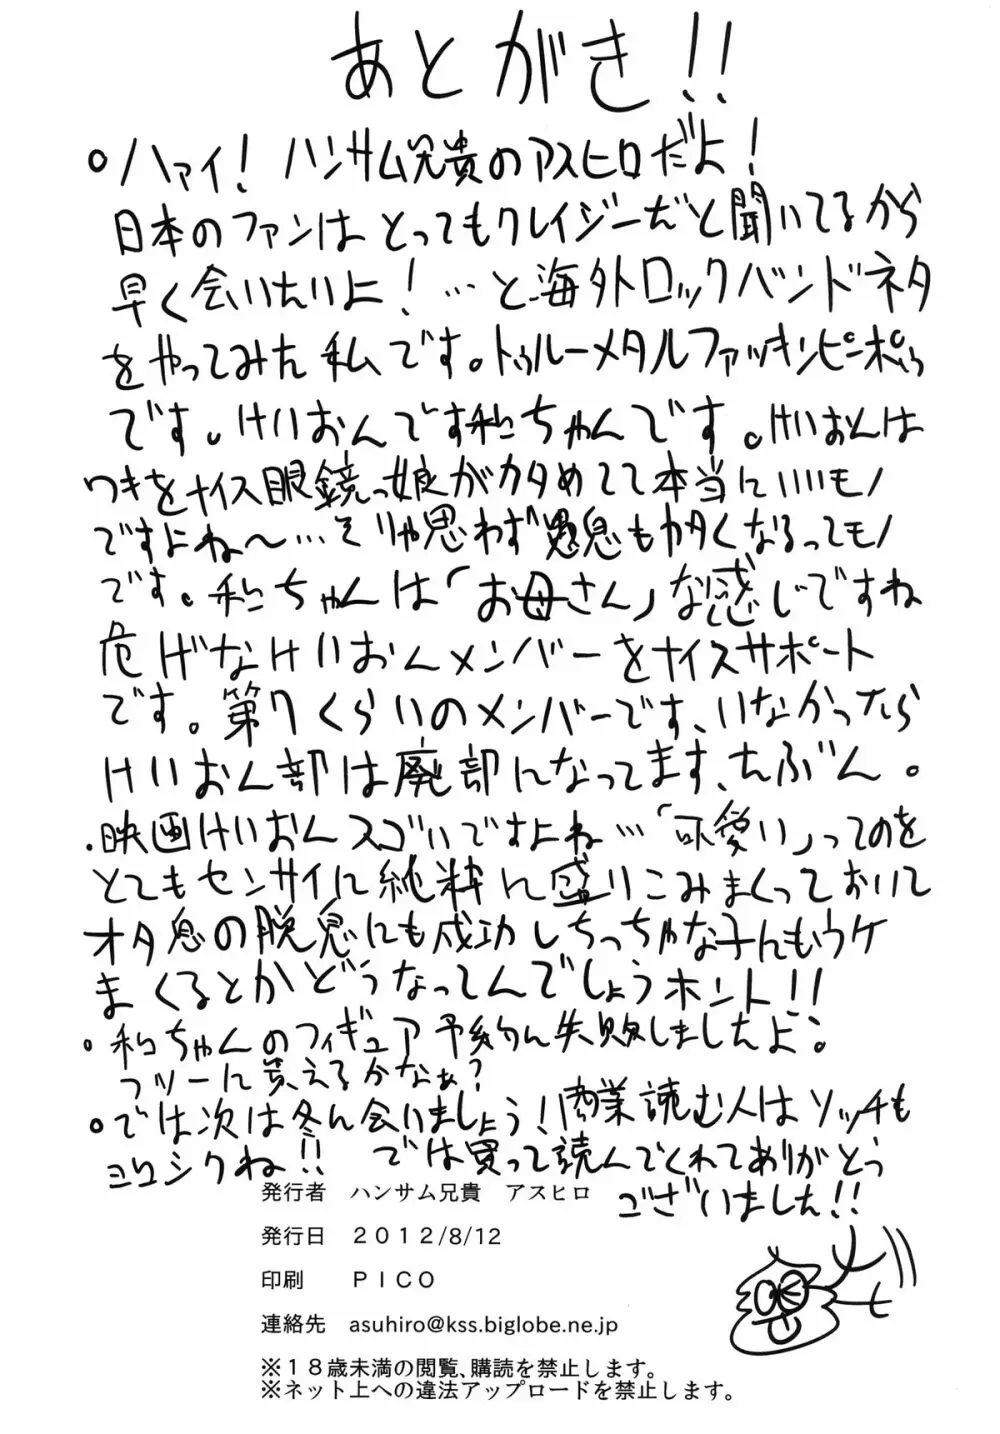 あとがき!!
。ハァイ! ハンサム兄貴のアスヒロだよ!
日本のファンはとってもクレイジーだと聞いてるから
早く会いたいよ!…と海外ロックバンドネタ
をやってみた私です。トゥルーメタルファッキンピーポゥ
です。けいおんです和ちゃんです。けいおんは
ワキをナイス眼鏡っ娘がカタめてて本当にいいモノ
ですよね〜…そりゃ思わず愚息も力多くなるってモノ
です。和ちゃんは「お母さん」な感じですね
危げなけいおんメンバーをナイスサポート
です。第7くらいのメンバーです、いなかったら
けいおん部は廃部になってます、たぶん。
.映画けいおんスゴいですよね…「可愛い」ってのを
とてもセンサイに純粋に盛りこみまくっておいて
オタ息の脱臭にも成功しちっちゃな子にもウケ
まくるとかどうなってんでしょうホント!!
。和ちゃんのフィギュア予約に失敗しましたよ。
フツーに買えるかなぁ?
。では次は冬に会いましょう!商業読む人はソッチも
ヨロシクね!! では買って読んでくれてありがとう
ございました!!
発行者 ハンサム兄貴 アスヒロ
発行日 2012/8/12
印刷 PICO
連絡先 asuhiro@kss.biglobe.ne.jp
※18歳未満の閲覧、購読を禁止します。
※ネット上への違法アップロードを禁止します。